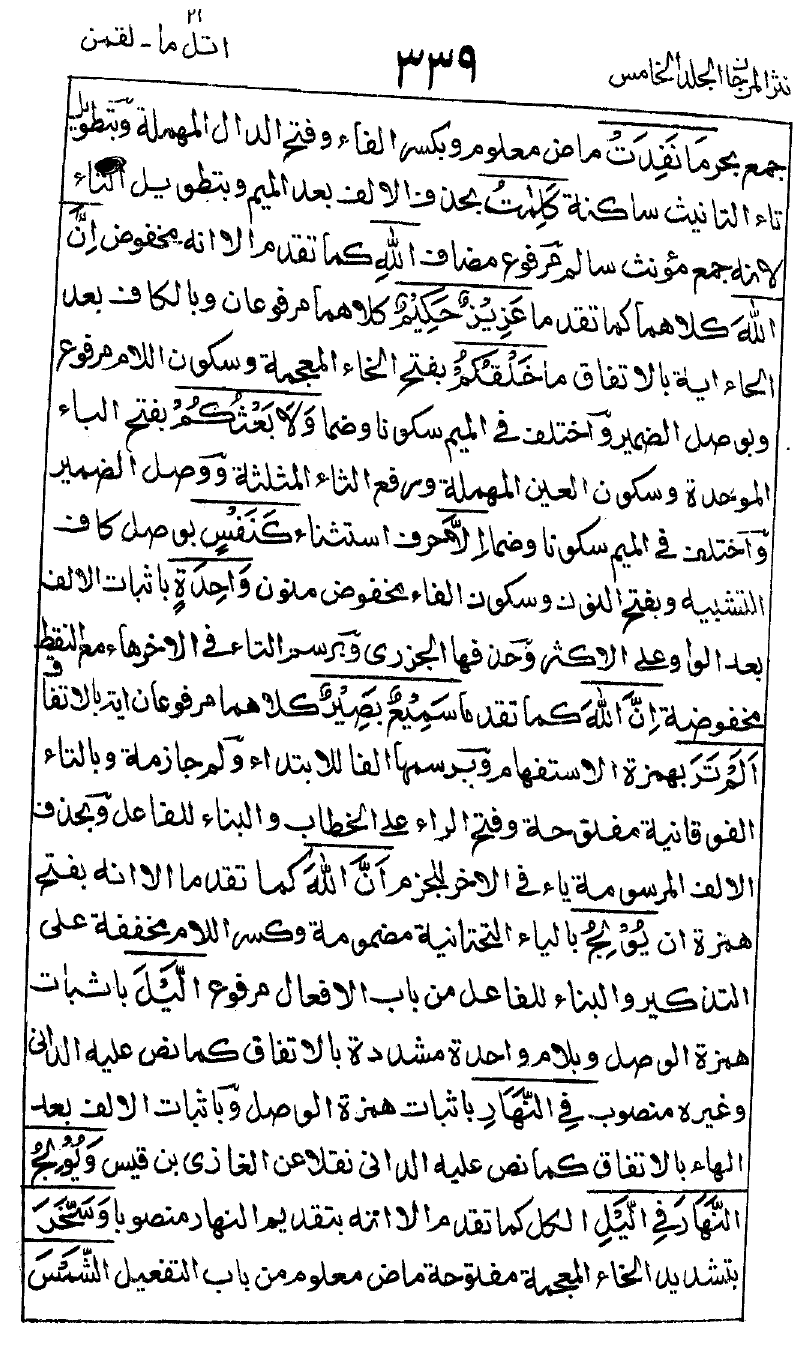 نثر المرجان الجلد الخامس ٣٣٩ اتل ما۔ لقمن ٢١
جمع بحر مَا نَفِدَتْ ماض معلوم وبكسر الفاء وفتح الدال المهملة وَبتطويل
تاء التانيث ساكنة كَلِمٰتُ بحذف الالف بعد الميم وبتطويل التاء
لانه جمع مؤنث سالم مرفوع مضاف اللهِ كما تقدم الا انه مخفوض اِنَّ
اللهَ كلاهما كما تقدما عَزِيْزٌ حَكِيْمٌ كلاهما مرفوعان وبالكاف بعد
الحاء اية بالاتفاق مَا خَلْقُكُمْ بفتح الخاء المعجمة وسكون اللام مرفوع
وبوصل الضمير وَاختلف في الميم سكونا وضما وَلَا بَعْثُكُمْ بفتح الباء
الموحدة وسكون العين المهملة ورفع الثاء المثلثة وَوصل الضمير
وَاختلف في الميم سكونا وضما اِلَّا حرف استثناء كَنَفْسٍ بوصل كاف
التشبيه وبفتح النون وسكون الفاء مخفوض منون وَاحِدَةٍ باثبات الالف
بعد الواو على الاكثر وَحذفها الجزرى وَبرسم التاء في الاخر هاء مع النقط
مخفوضة اِنَّ اللهَ كما تقدما سَمِيْعٌۢ بَصِيْرٌ كلاهما مرفوعان اية بالاتفاق
اَلَمْ تَرَ بهمزة الاستفهام وَبرسمها الفا للابتداء وَلم جازمة وبالتاء
الفوقانية مفتوحة وفتح الراء على الخطاب والبناء للفاعل وَبحذف
الالف المرسومة ياء في الاخر للجزم اَنَّ اللهَ كما تقدما الا انه بفتح
همزة ان يُوْلِجُ بالياء التحتانية مضمومة وكسر اللام مخففة على
التذكير والبناء للفاعل من باب الافعال مرفوع الَّيْلَ باثبات
همزة الوصل وبلام واحدة مشددة بالاتفاق كما نص عليه الدانى
وغيره منصوب فِي النَّهَارِ باثبات همزة الوصل وَباثبات الالف بعد
الهاء بالاتفاق كما نص عليه الدانى نقلا عن الغازى بن قيس وَيُوْلِجُ
النَّهَارَ فِي الَّيْلِ الكل كما تقدم الا انه بتقديم النهار منصوبا وَسَخَّرَ
بتشديد الخاء المعجمة مفتوحة ماض معلوم من باب التفعيل الشَّمْسَ